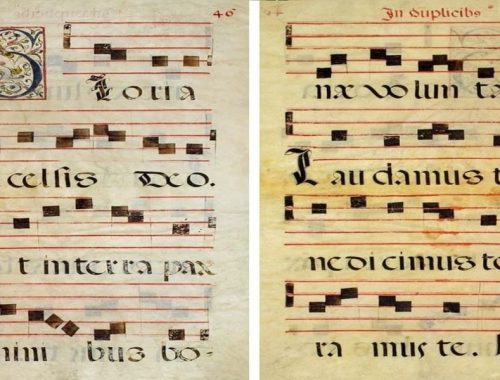 46
Gloria
celsis Deo.
t in terra pax
mini bus bo-
In duplicibs
næ volun ta
Lau damus t
nedi cimus te
ra mus te.